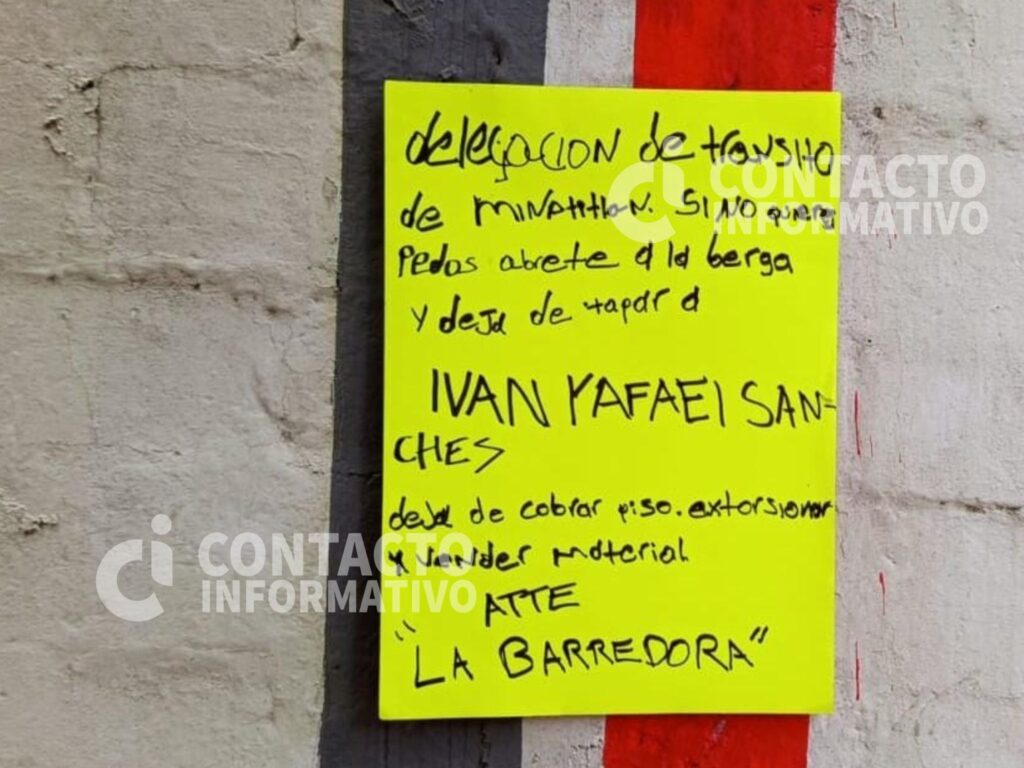 delegacion de transito
de minatitlan. SI NO quieres
Pedos abrete a la berga
y deja de tapar a
IVAN RAFAEl SAN-
CHES
deja de cobrar piso. extorsionar
y vender material
ATTE
"LA BARREDORA"
ci CONTACTO INFORMATIVO
ci CONTACTO INFORMATIVO